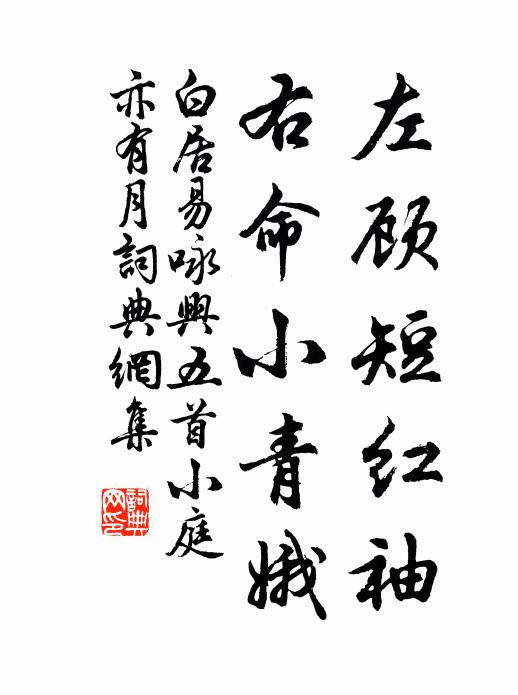 左顾短红袖
右命小青娥
白居易咏興五首小庭
亦有月詞典網集
詞典网印